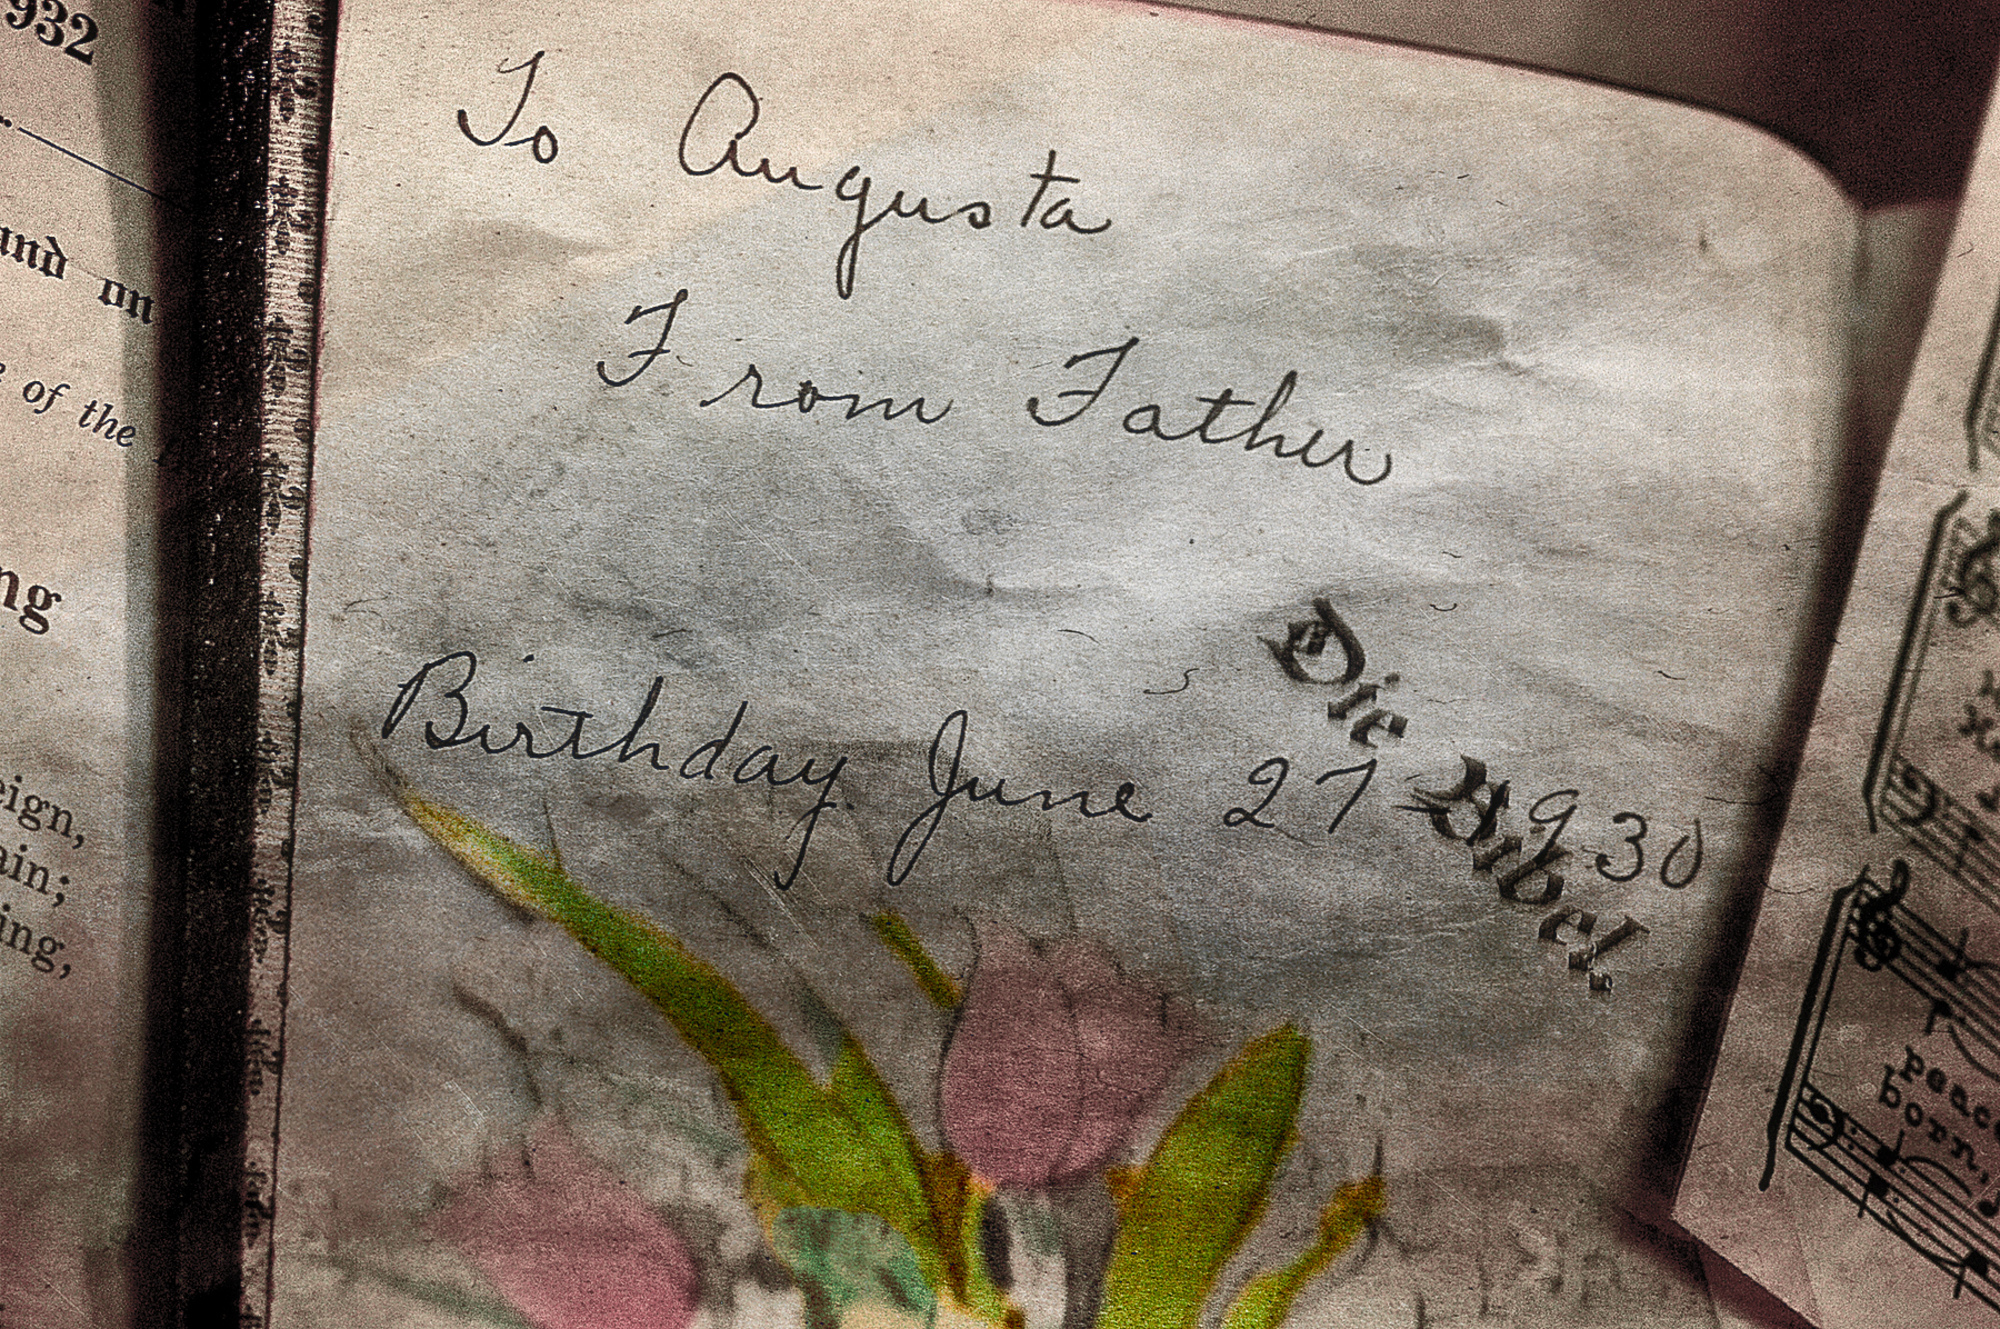 932
and on
of the
ng
eign,
ain;
ing,
To Augusta
From Father
Birthday. June 27 1930
Die Bibel.
peace
born,